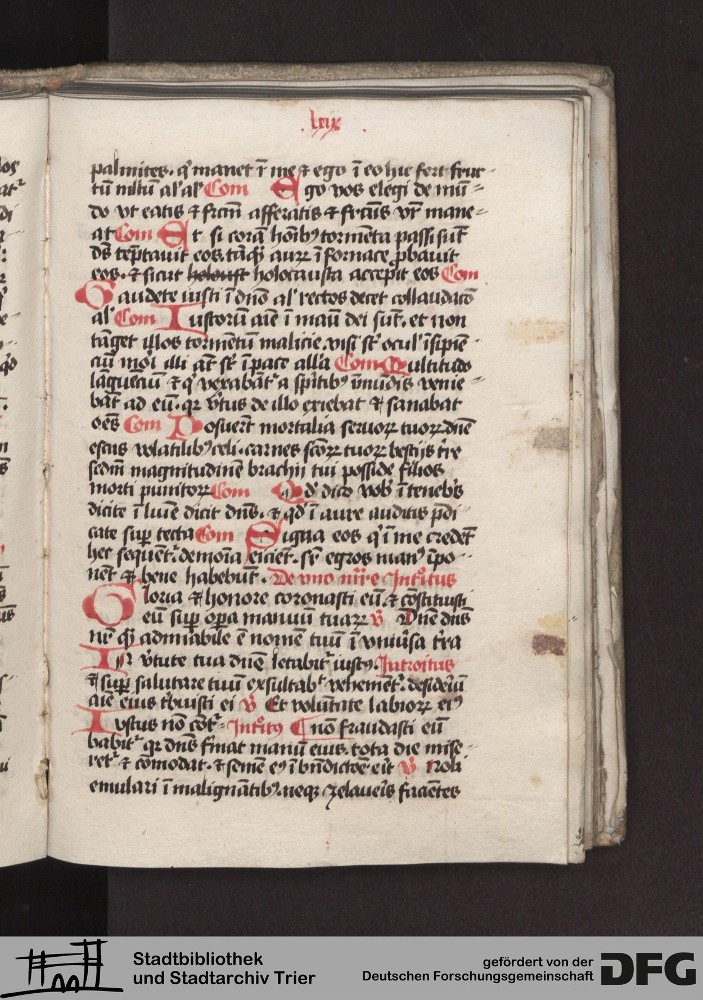 .lxix.
palmites. q̇ manet ī me ⁊ ego ī eo hic fert fruc=
tū mltū al' al' Com Ego vos elegi de mū=
do vt eatis ⁊ frcm̄ afferatis ⁊ frc̄us vr̄ mane=
at Com Et si corā hoīb9 tormēta passi sūt
ds̄ tēptauit eos. tāq̄ aurꝝ ī fornace ꝓbauit
eos. ⁊ sicut holocausta accepit eos Com
Gaudete iusti ī dn̄o al' rectos decet collaudacō
al' Com Iustorū aīe ī manū dei sūt. et non
tāget illos tormētū malicie. visi st̄ ocul' īsipiē=
ciū mori illi aūt st̄ ī pace alla Com Multitudo
lāguenciū ⁊ q̇ vexabāt' a sp̄itib9 īmūdis venie=
bāt ad eū. qꝛ v̄tus de illo exiebat ⁊ sanabat
oēs Com Posuerūt mortalia seruoꝝ tuoꝝ dn̄e
escas volatilib9 celi. carnes sc̄oꝝ tuoꝝ bestijs t̄re
sedm̄ magnitudinē brachij tui posside filios
morti punitoꝝ Com Qd̄ dico vob̄ ī teneb̄is
dicite ī luīe dicit dn̄s. ⁊ qd̄ ī aure auditis p̄di
cate suꝑ tecta Com Signa eos q̇ ī me credēt
hec sequent'. demoīa eicient. sr̄ egros man9 īpo=
nēt ⁊ bene habebūt. De vno mr̄re Introitus
Gloria ⁊ honore coronasti eū. ⁊ cōstituisti
eū suꝑ oꝑa manuū tuaꝝ V̄ Dn̄e dn̄s
nr̄ q̄ admirabile ē nomē tuū ī vniūsa t̄ra
In v̄tute tua dn̄e letabit' iust9. Introitus
⁊ suꝑ salutare tuū exsultab' vehemēt'. desideriū
aīe eius t'buisti ei V̄ Et volūtate labioꝝ ei9
Iustus nō cōt' Introit9 nō fraudasti eū
babit' qꝛ dn̄s firmat manū eius. tota die mise=
ret' ⁊ comodat. ⁊ semē ei9 ī bn̄dictōe erit V̄ Noli
emulari ī malignātib9. neqꝫ zelaueris faciētes
Stadtbibliothek
und Stadtarchiv Trier
gefördert von der
Deutschen Forschungsgemeinschaft
DFG